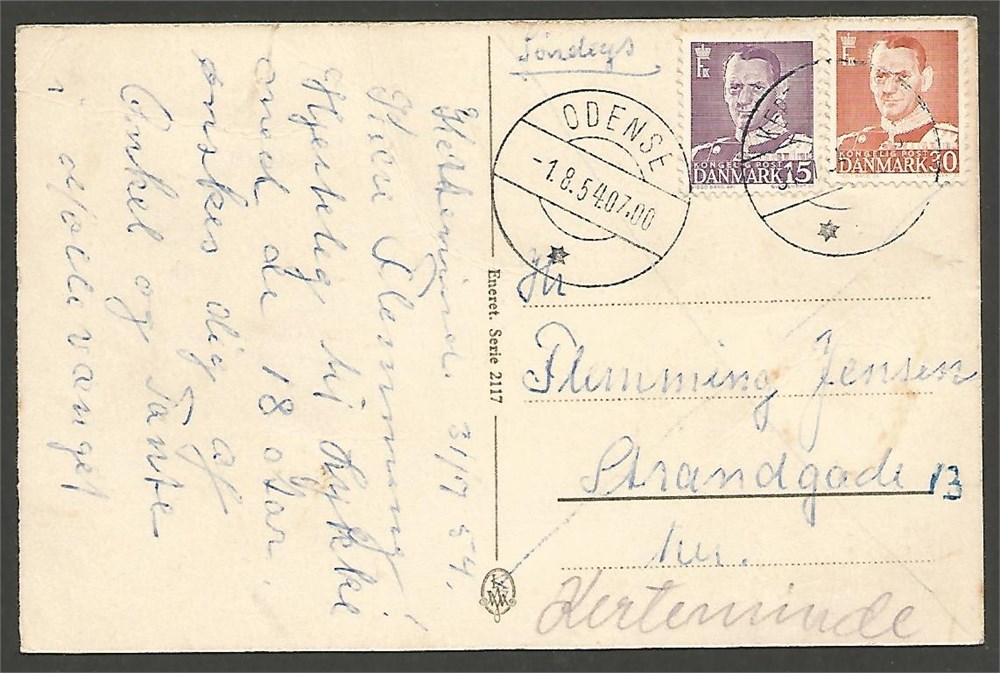 Kerteminde 31/7 54.
Kære Flemming!
Hjertelig til Lykke
med de 18 Aar.
ønskes dig af
Onkel og Tante
i
Eneret. Serie 2117
Søndags
ODENSE
-1.8.54.07.00
KONGELIG POST
DANMARK 15
KONGELIG POST
DANMARK 30
Hr
Flemming Jensen
Strandgade 13
Kerteminde